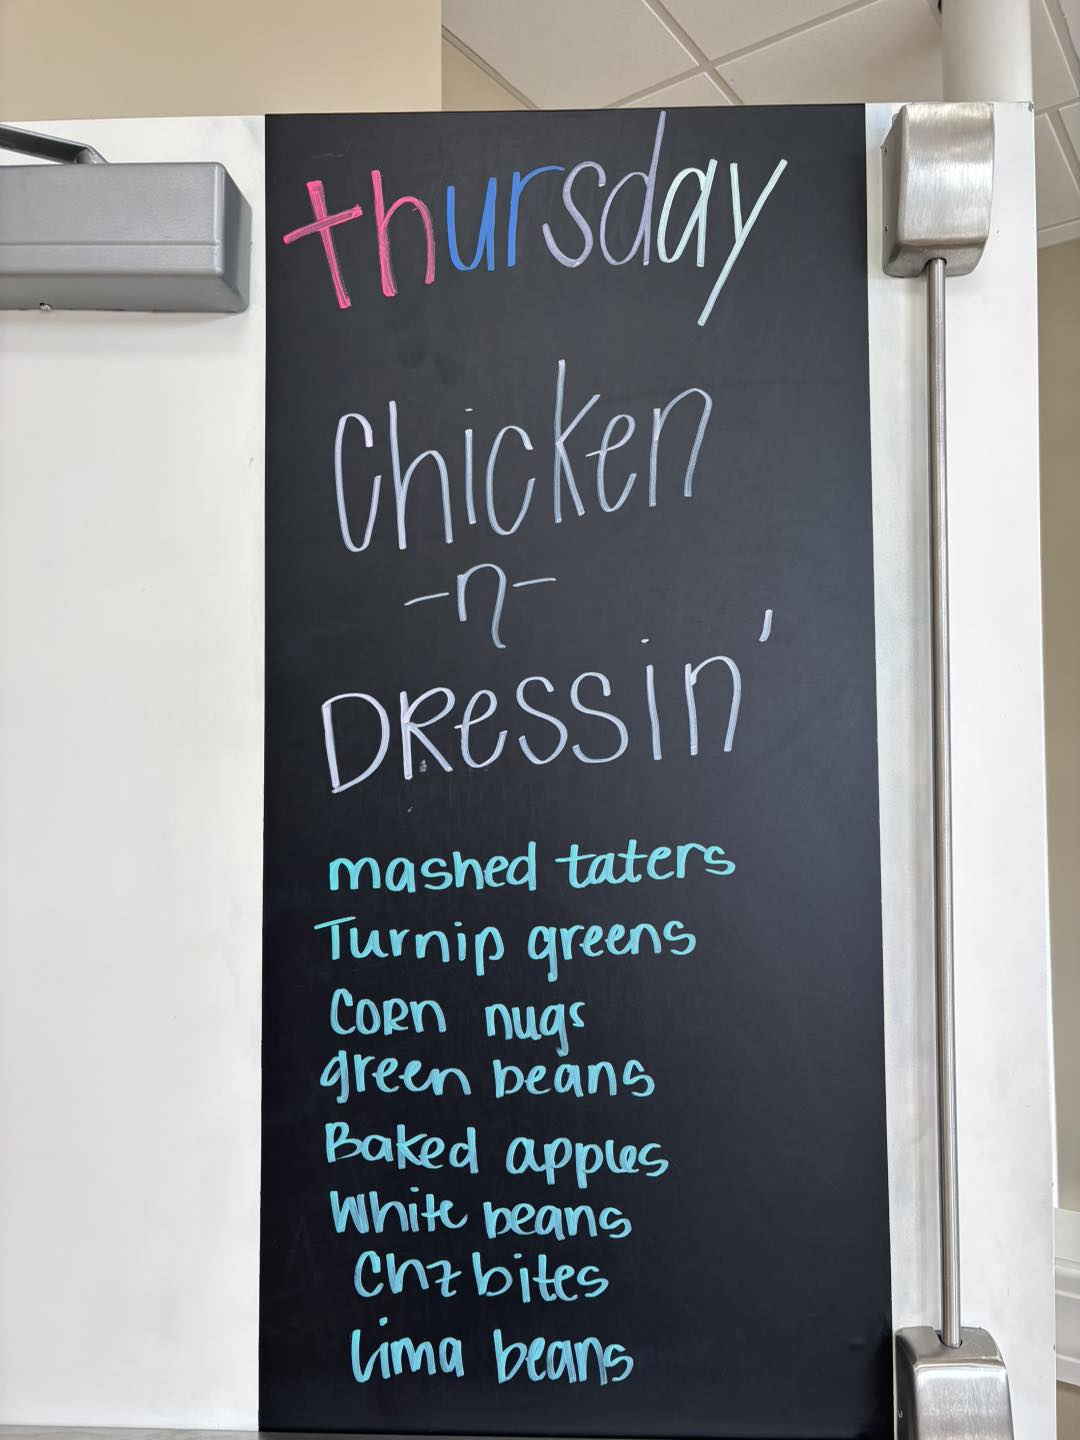 thursday
Chicken
-n-
DRessin'
mashed taters
Turnip greens
CoRn nugs
green beans
Baked apples
White beans
Chz bites
Lima beans